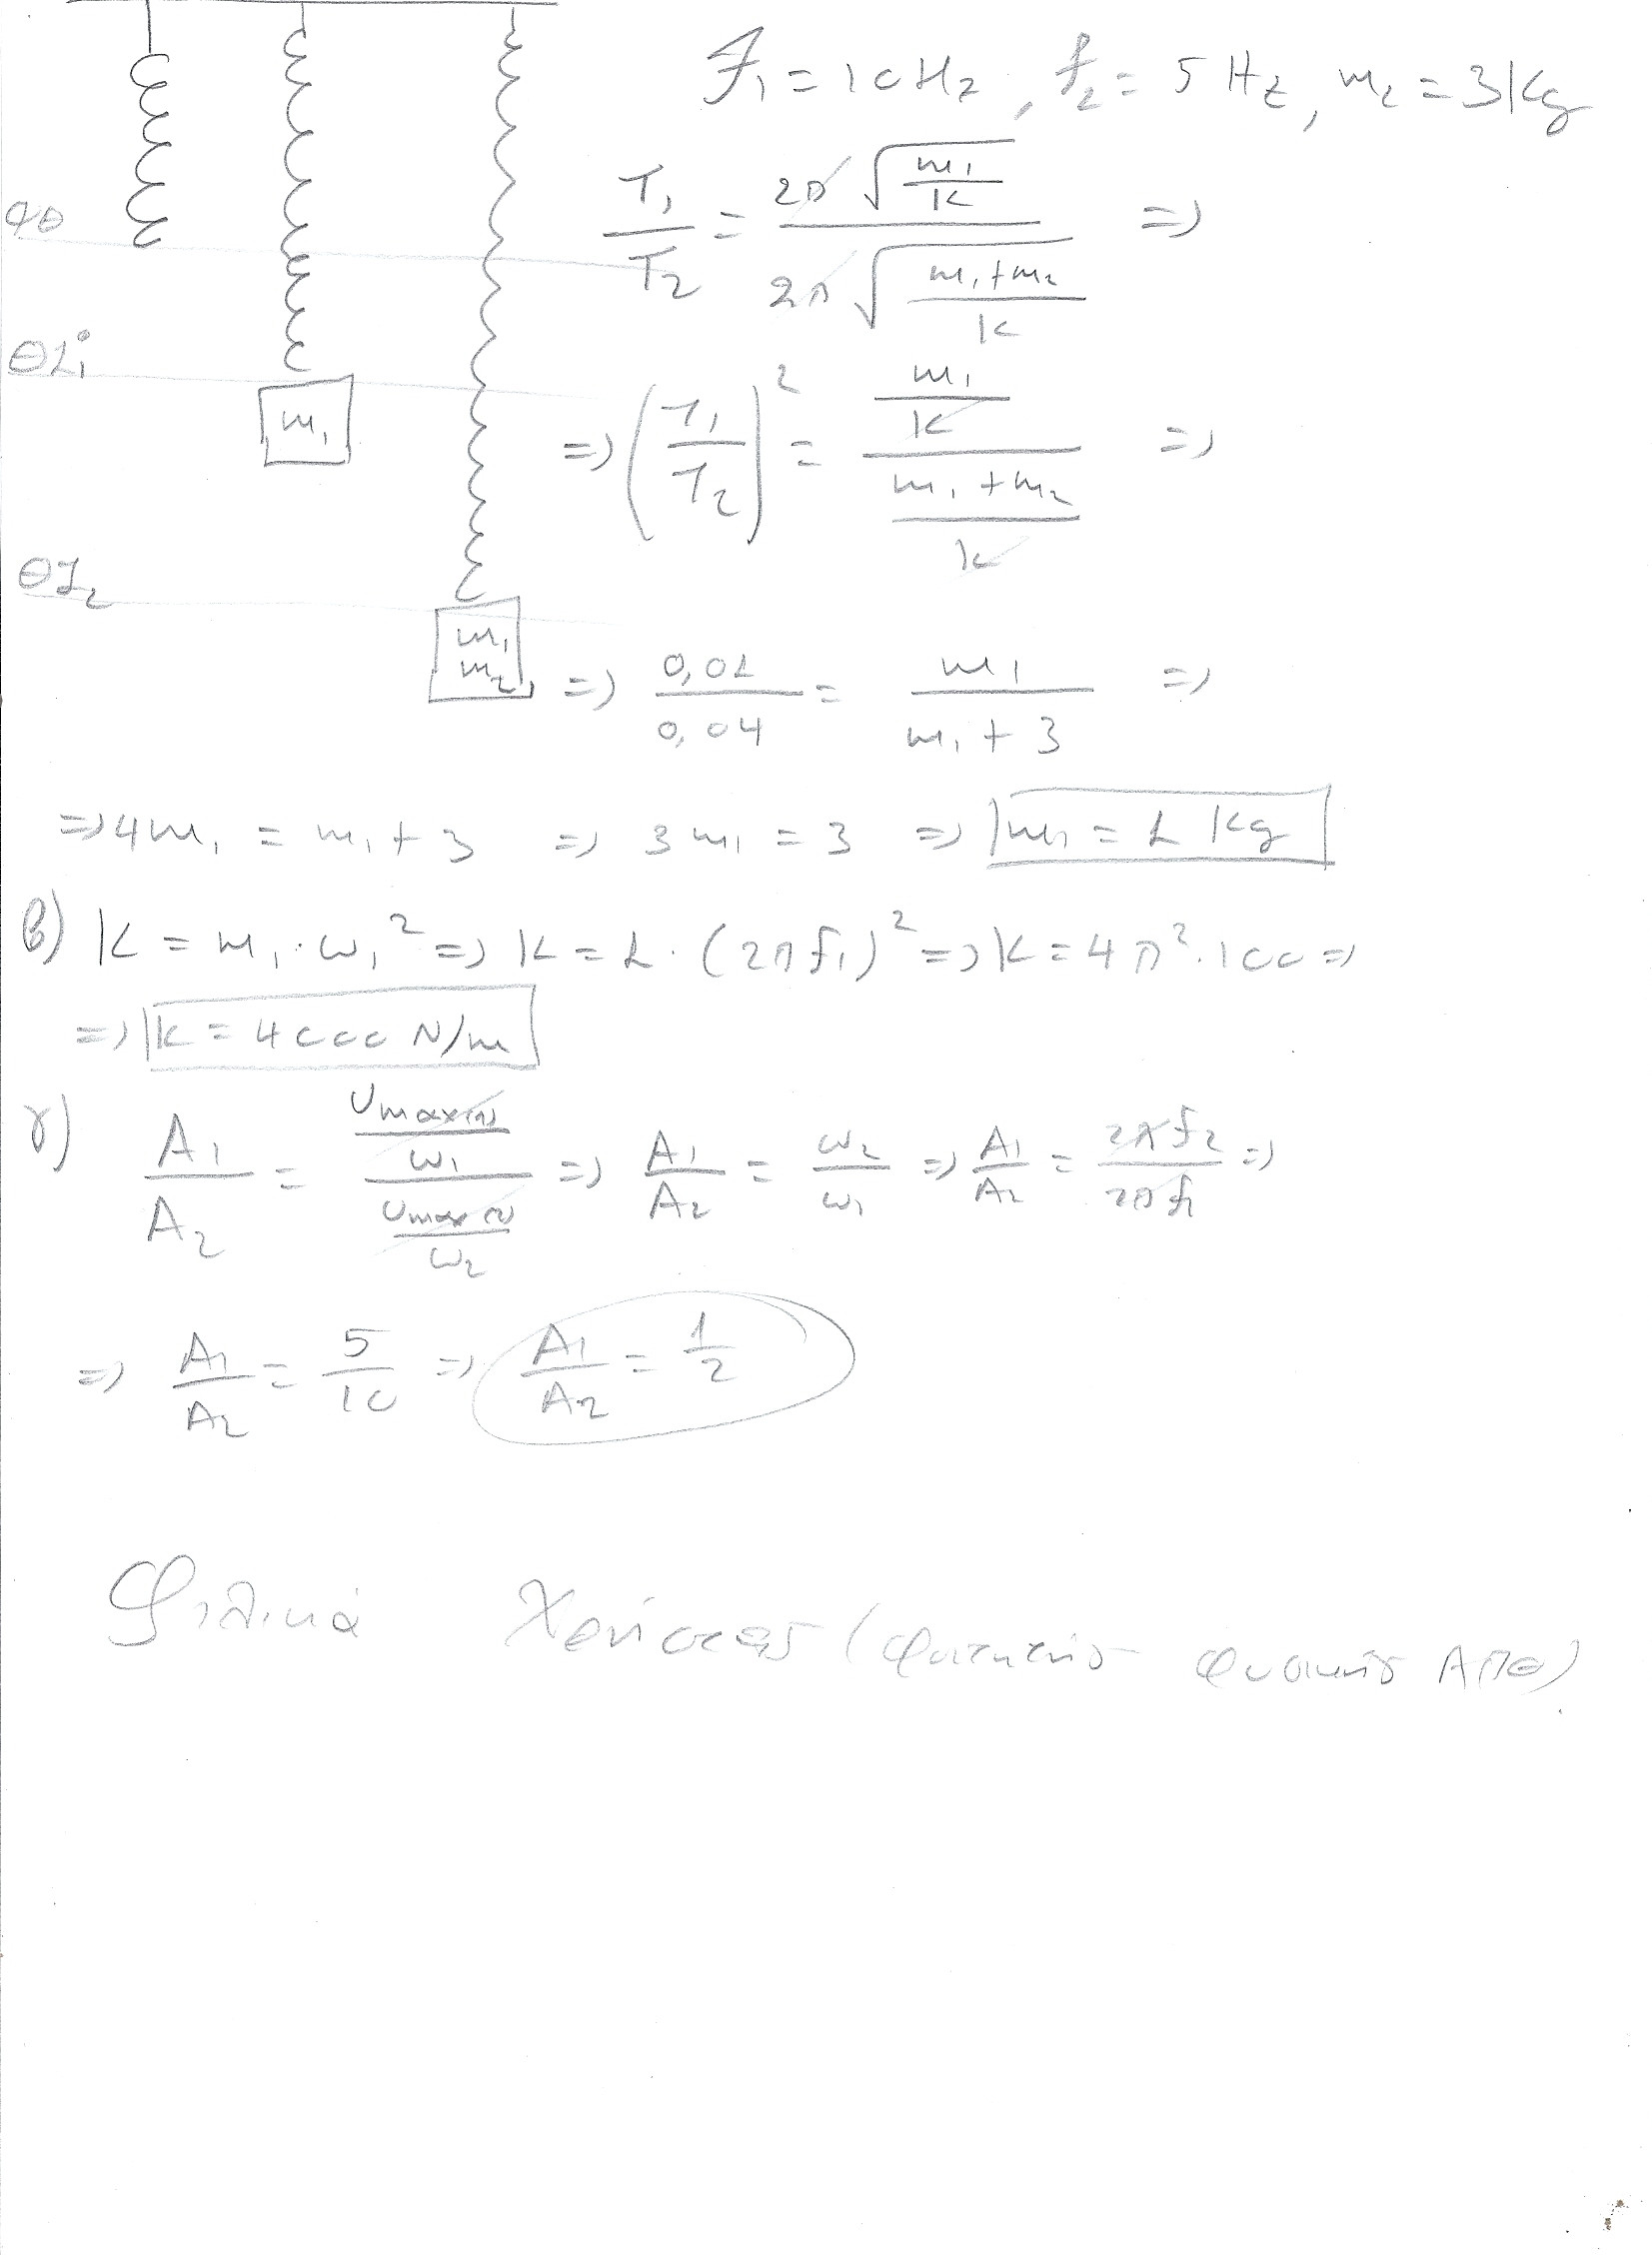 f₁ = 10 Hz, f₂ = 5 Hz, m₂ = 3 kg
T₁/T₂ = 2π√(m₁/k) / 2π√((m₁+m₂)/k) =>
ΦΘ
ΘΙ₁
m₁
=> (T₁/T₂)² = (m₁/k) / ((m₁+m₂)/k) =>
ΘΙ₂
m₁
m₂
=> 0,01/0,04 = m₁/(m₁+3) =>
=> 4m₁ = m₁ + 3 => 3m₁ = 3 => m₁ = 1 kg
β) k = m₁·ω₁² => k = 1·(2πf₁)² => k = 4π²·100 =>
=> k = 4000 N/m
γ) A₁/A₂ = (υmax(1)/ω₁) / (υmax(2)/ω₂) => A₁/A₂ = ω₂/ω₁ => A₁/A₂ = 2πf₂/2πf₁ =>
=> A₁/A₂ = 5/10 => A₁/A₂ = 1/2
Φιλικά (φοιτητής φυσικής ΑΠΘ)